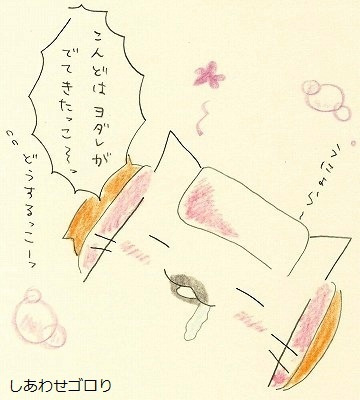 こんどはヨダレが
でてきたっこ〜っ
どうするっこーっ
しあわせゴロり